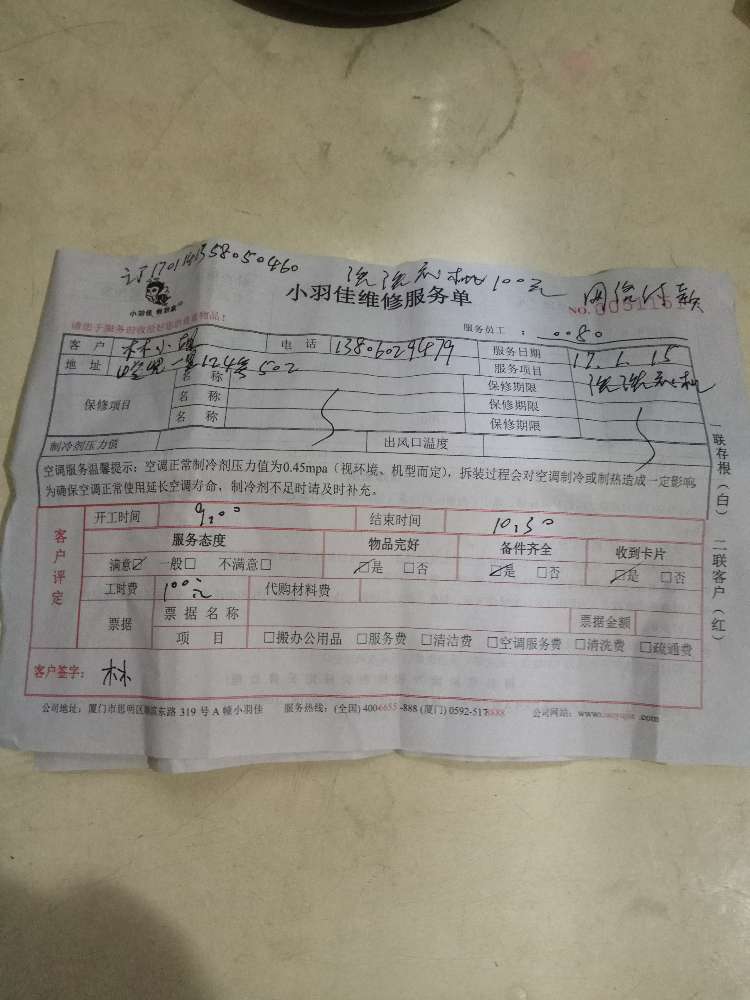 订170114358050460 洗洗衣机100元 网络付款
小羽佳 救救家
小羽佳维修服务单
NO.
请您于服务前收捡好您的贵重物品!
服务员工 : 0080
客 户 林小 电 话 13806029479 服务日期 17.1.15
地 址 一里124号502 服务项目 洗洗衣机
保修项目 名 称 保修期限
名 称 保修期限
名 称 保修期限
制冷剂压力值 出风口温度
空调服务温馨提示:空调正常制冷剂压力值为0.45mpa(视环境、机型而定),拆装过程会对空调制冷或制热造成一定影响
为确保空调正常使用延长空调寿命,制冷剂不足时请及时补充。
客户评定
开工时间 9:00 结束时间 10:30
服务态度 物品完好 备件齐全 收到卡片
满意☑ 一般□ 不满意□ ☑是 □否 ☑是 □否 ☑是 □否
工时费 100元 代购材料费
票据 票 据 名 称 票据金额
项 目 □搬办公用品 □服务费 □清洁费 □空调服务费 □清洗费 □疏通费
客户签字: 林
公司地址:厦门市思明区湖滨东路 319 号 A 幢小羽佳 服务热线:(全国) 4006655-888 (厦门) 0592-5178888 公司网站:www. .com
一联存根(白) 二联客户(红)